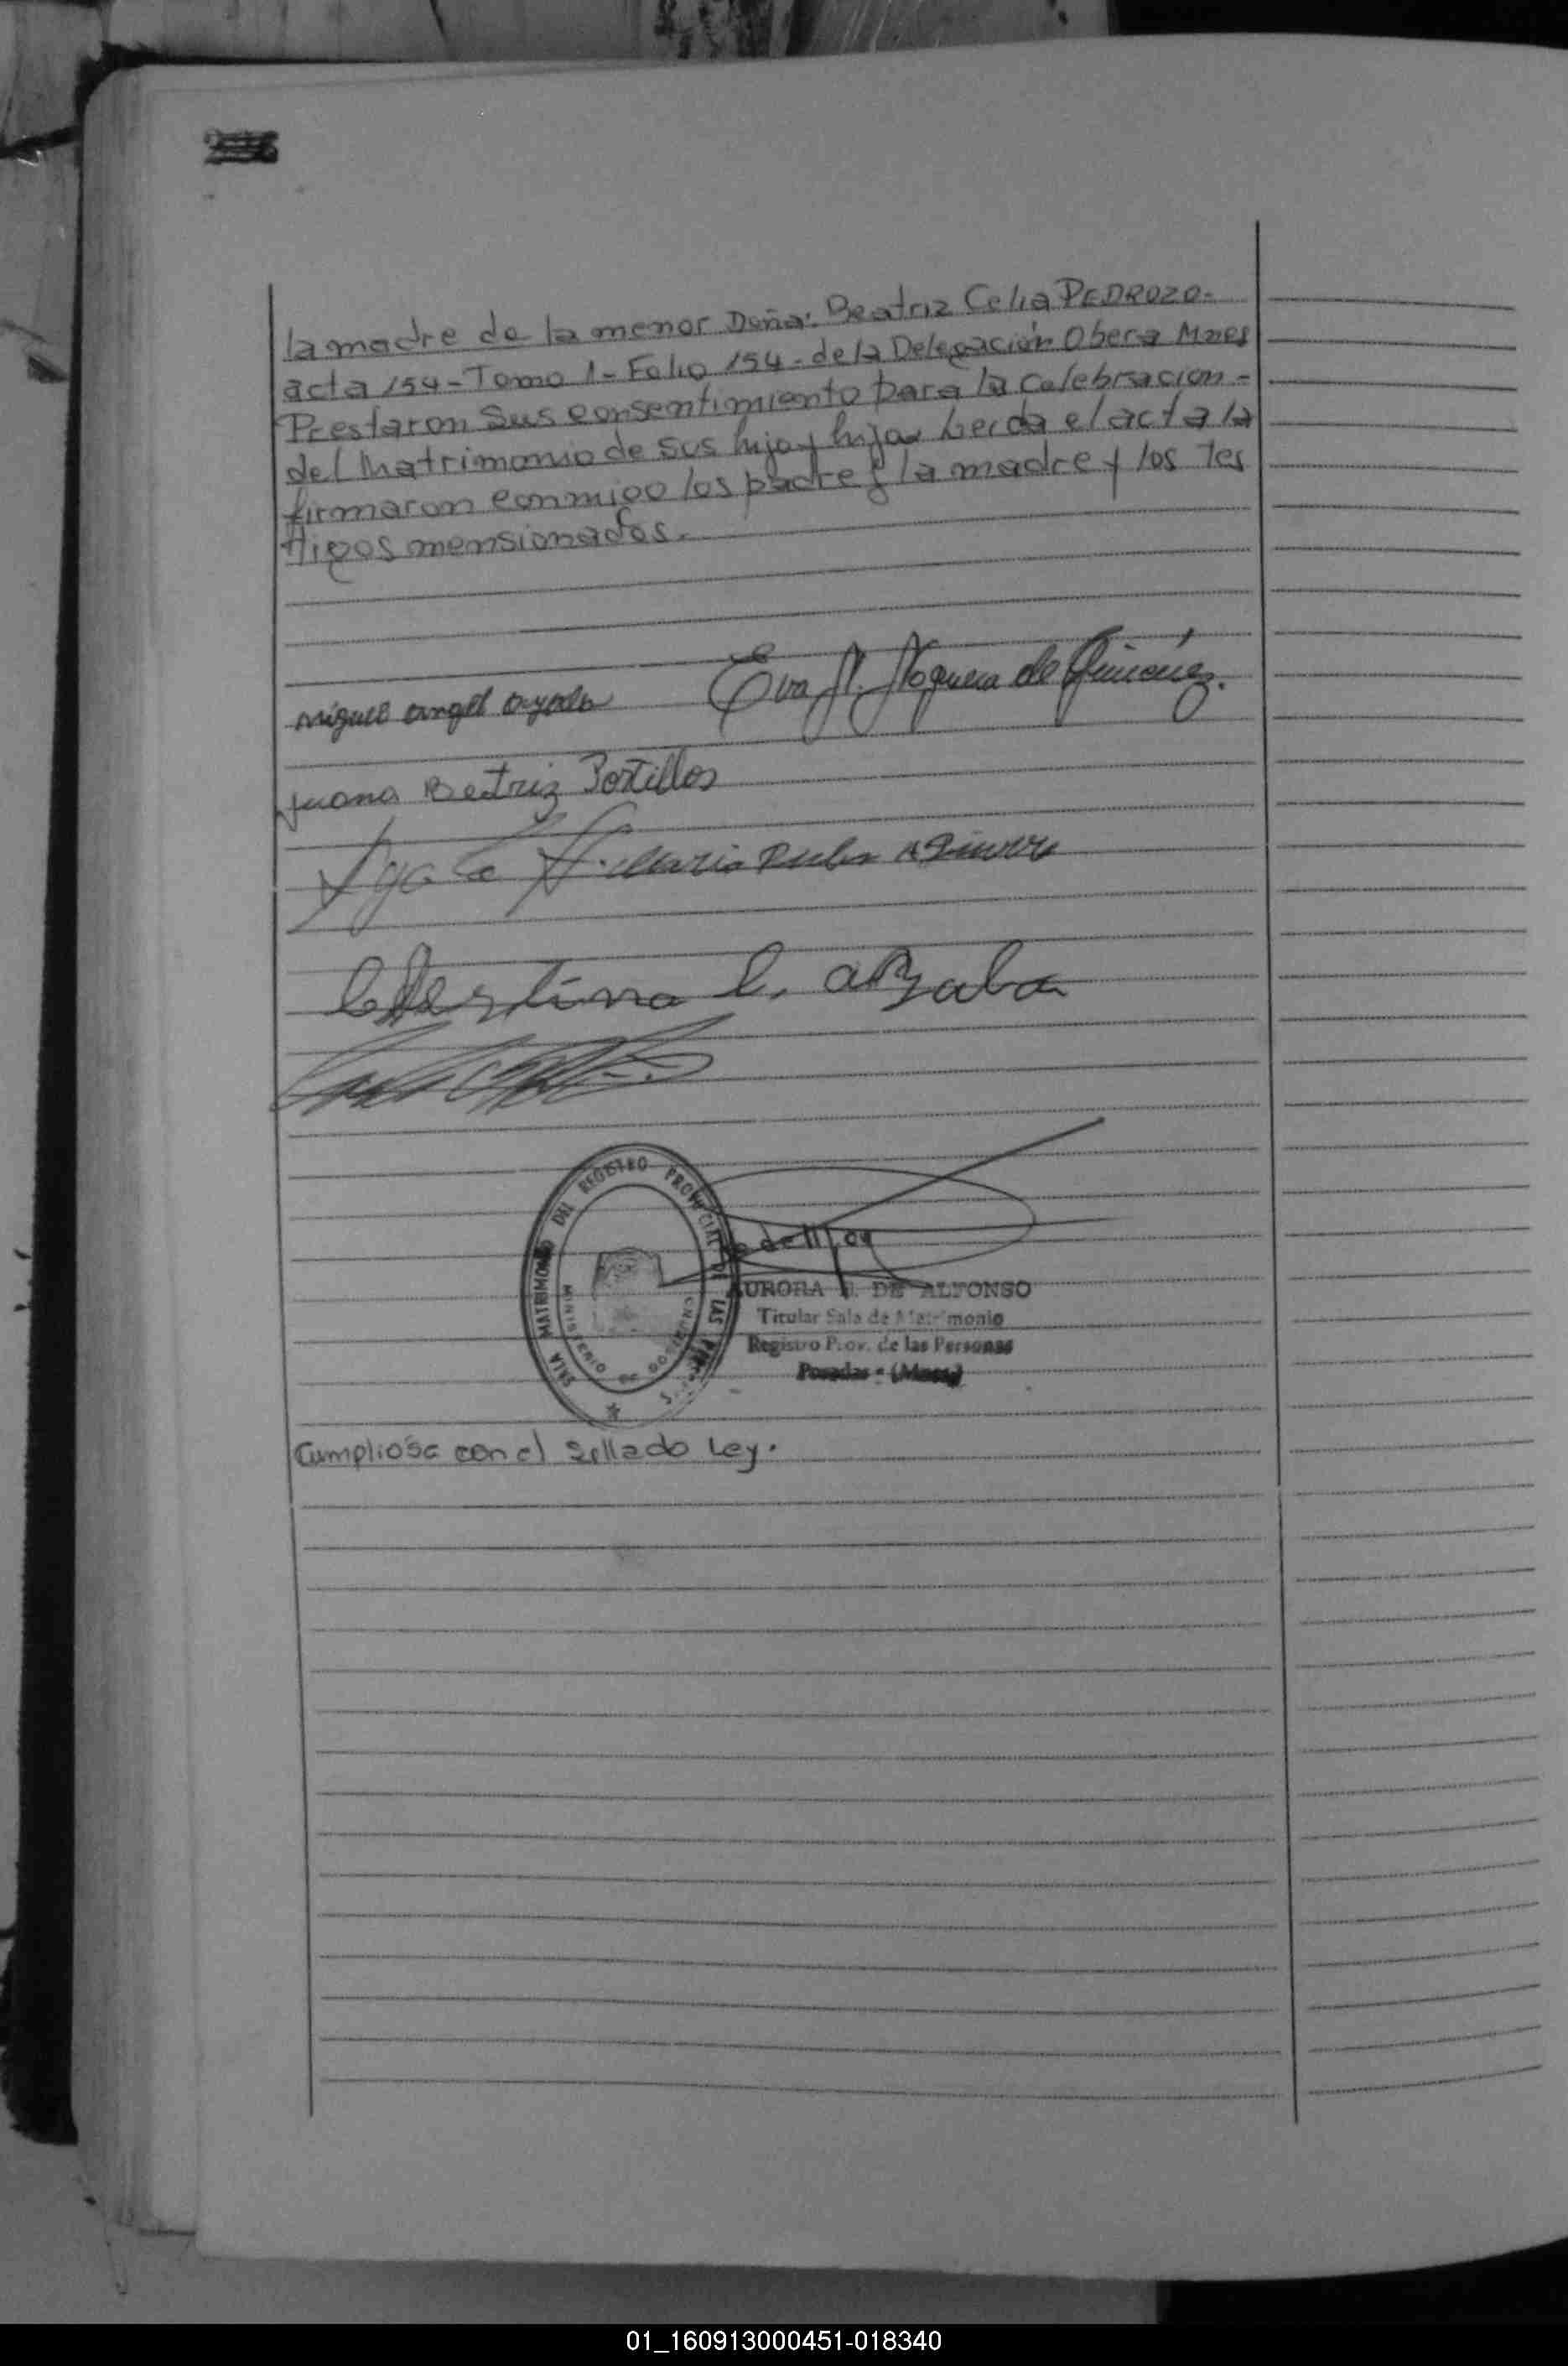 la madre de la menor Doña: Beatriz Celia PEDROZO-
acta 154-Tomo 1-Folio 154-de la Delegación Obera Mnes
Prestaron Sus consentimiento para la Celebracion-
del Matrimonio de sus hijo y hija Leida el acta la
firmaron conmigo los padre y la madre y los Tes
tigos mensionados.
Miguel angel ayala
Eva N. Noguera de Giménez.
Juana Beatriz Portillos
Ayala H.
Celestina C.
SALA MATRIMONIO DEL REGISTRO PROVINCIAL DE LAS
MINISTERIO DE GOBIERNO
AURORA DE ALFONSO
Titular Sala de Matrimonio
Registro Prov. de las Personas
Posadas - (Mnes)
Cumpliose con el Sellado Ley.
01_160913000451-018340